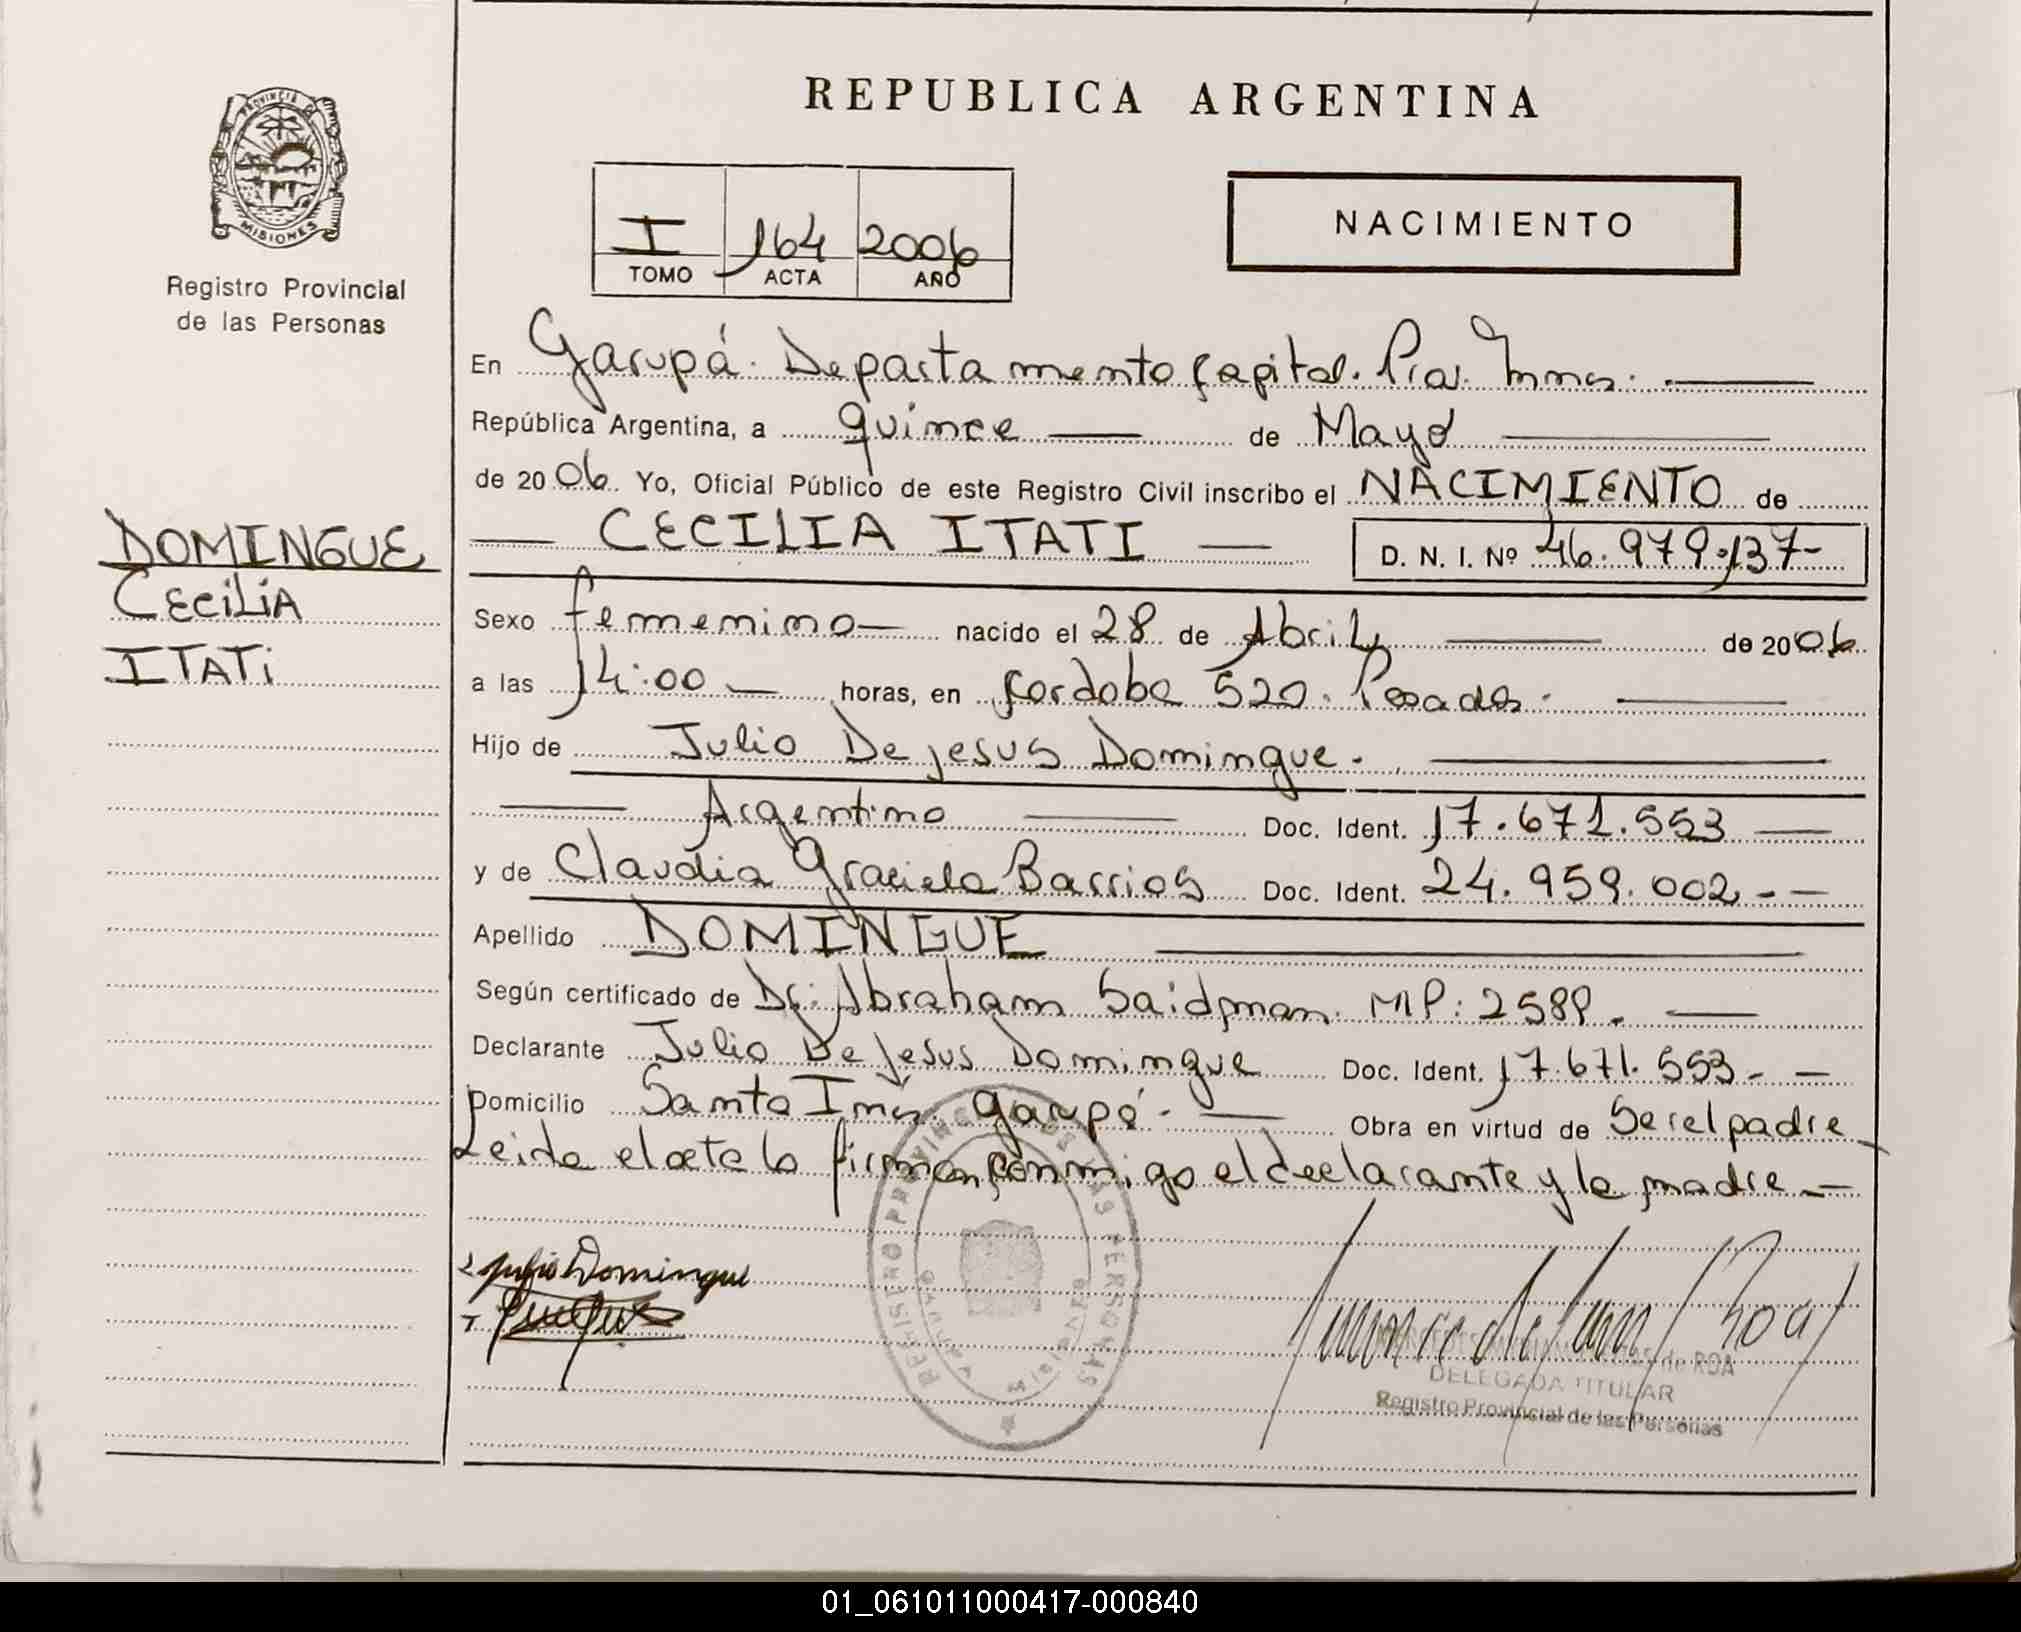 REPUBLICA ARGENTINA
PROVINCIA DE
MISIONES
Registro Provincial
de las Personas
I 164 2006
TOMO ACTA AÑO
NACIMIENTO
DOMINGUE
CECILIA
ITATI
En Garupá. Departamento Capital. Pia. Mnes.
República Argentina, a quince de Mayo
de 2006. Yo, Oficial Público de este Registro Civil inscribo el NACIMIENTO de
CECILIA ITATI D. N. I. Nº 46.979.137-
Sexo femenino nacido el 28 de Abril de 2006
a las 14:00 horas, en Cordoba 520. Posadas.
Hijo de Julio De jesus Domingue.
Argentino Doc. Ident. 17.671.553
y de Claudia Graciela Barrios Doc. Ident. 24.959.002
Apellido DOMINGUE
Según certificado de Dr: Abraham Saidman. MP: 2589.
Declarante Julio De Jesus Domingue Doc. Ident. 17.671.553
Domicilio Santa Ines. Garupá. Obra en virtud de Ser el padre
Leida el acta la firman conmigo el declarante y la madre
Julio Domingue
REGISTRO PROVINCIAL DE LAS PERSONAS
GARUPA MISIONES
de ROA
DELEGADA TITULAR
Registro Provincial de las Personas
01_061011000417-000840